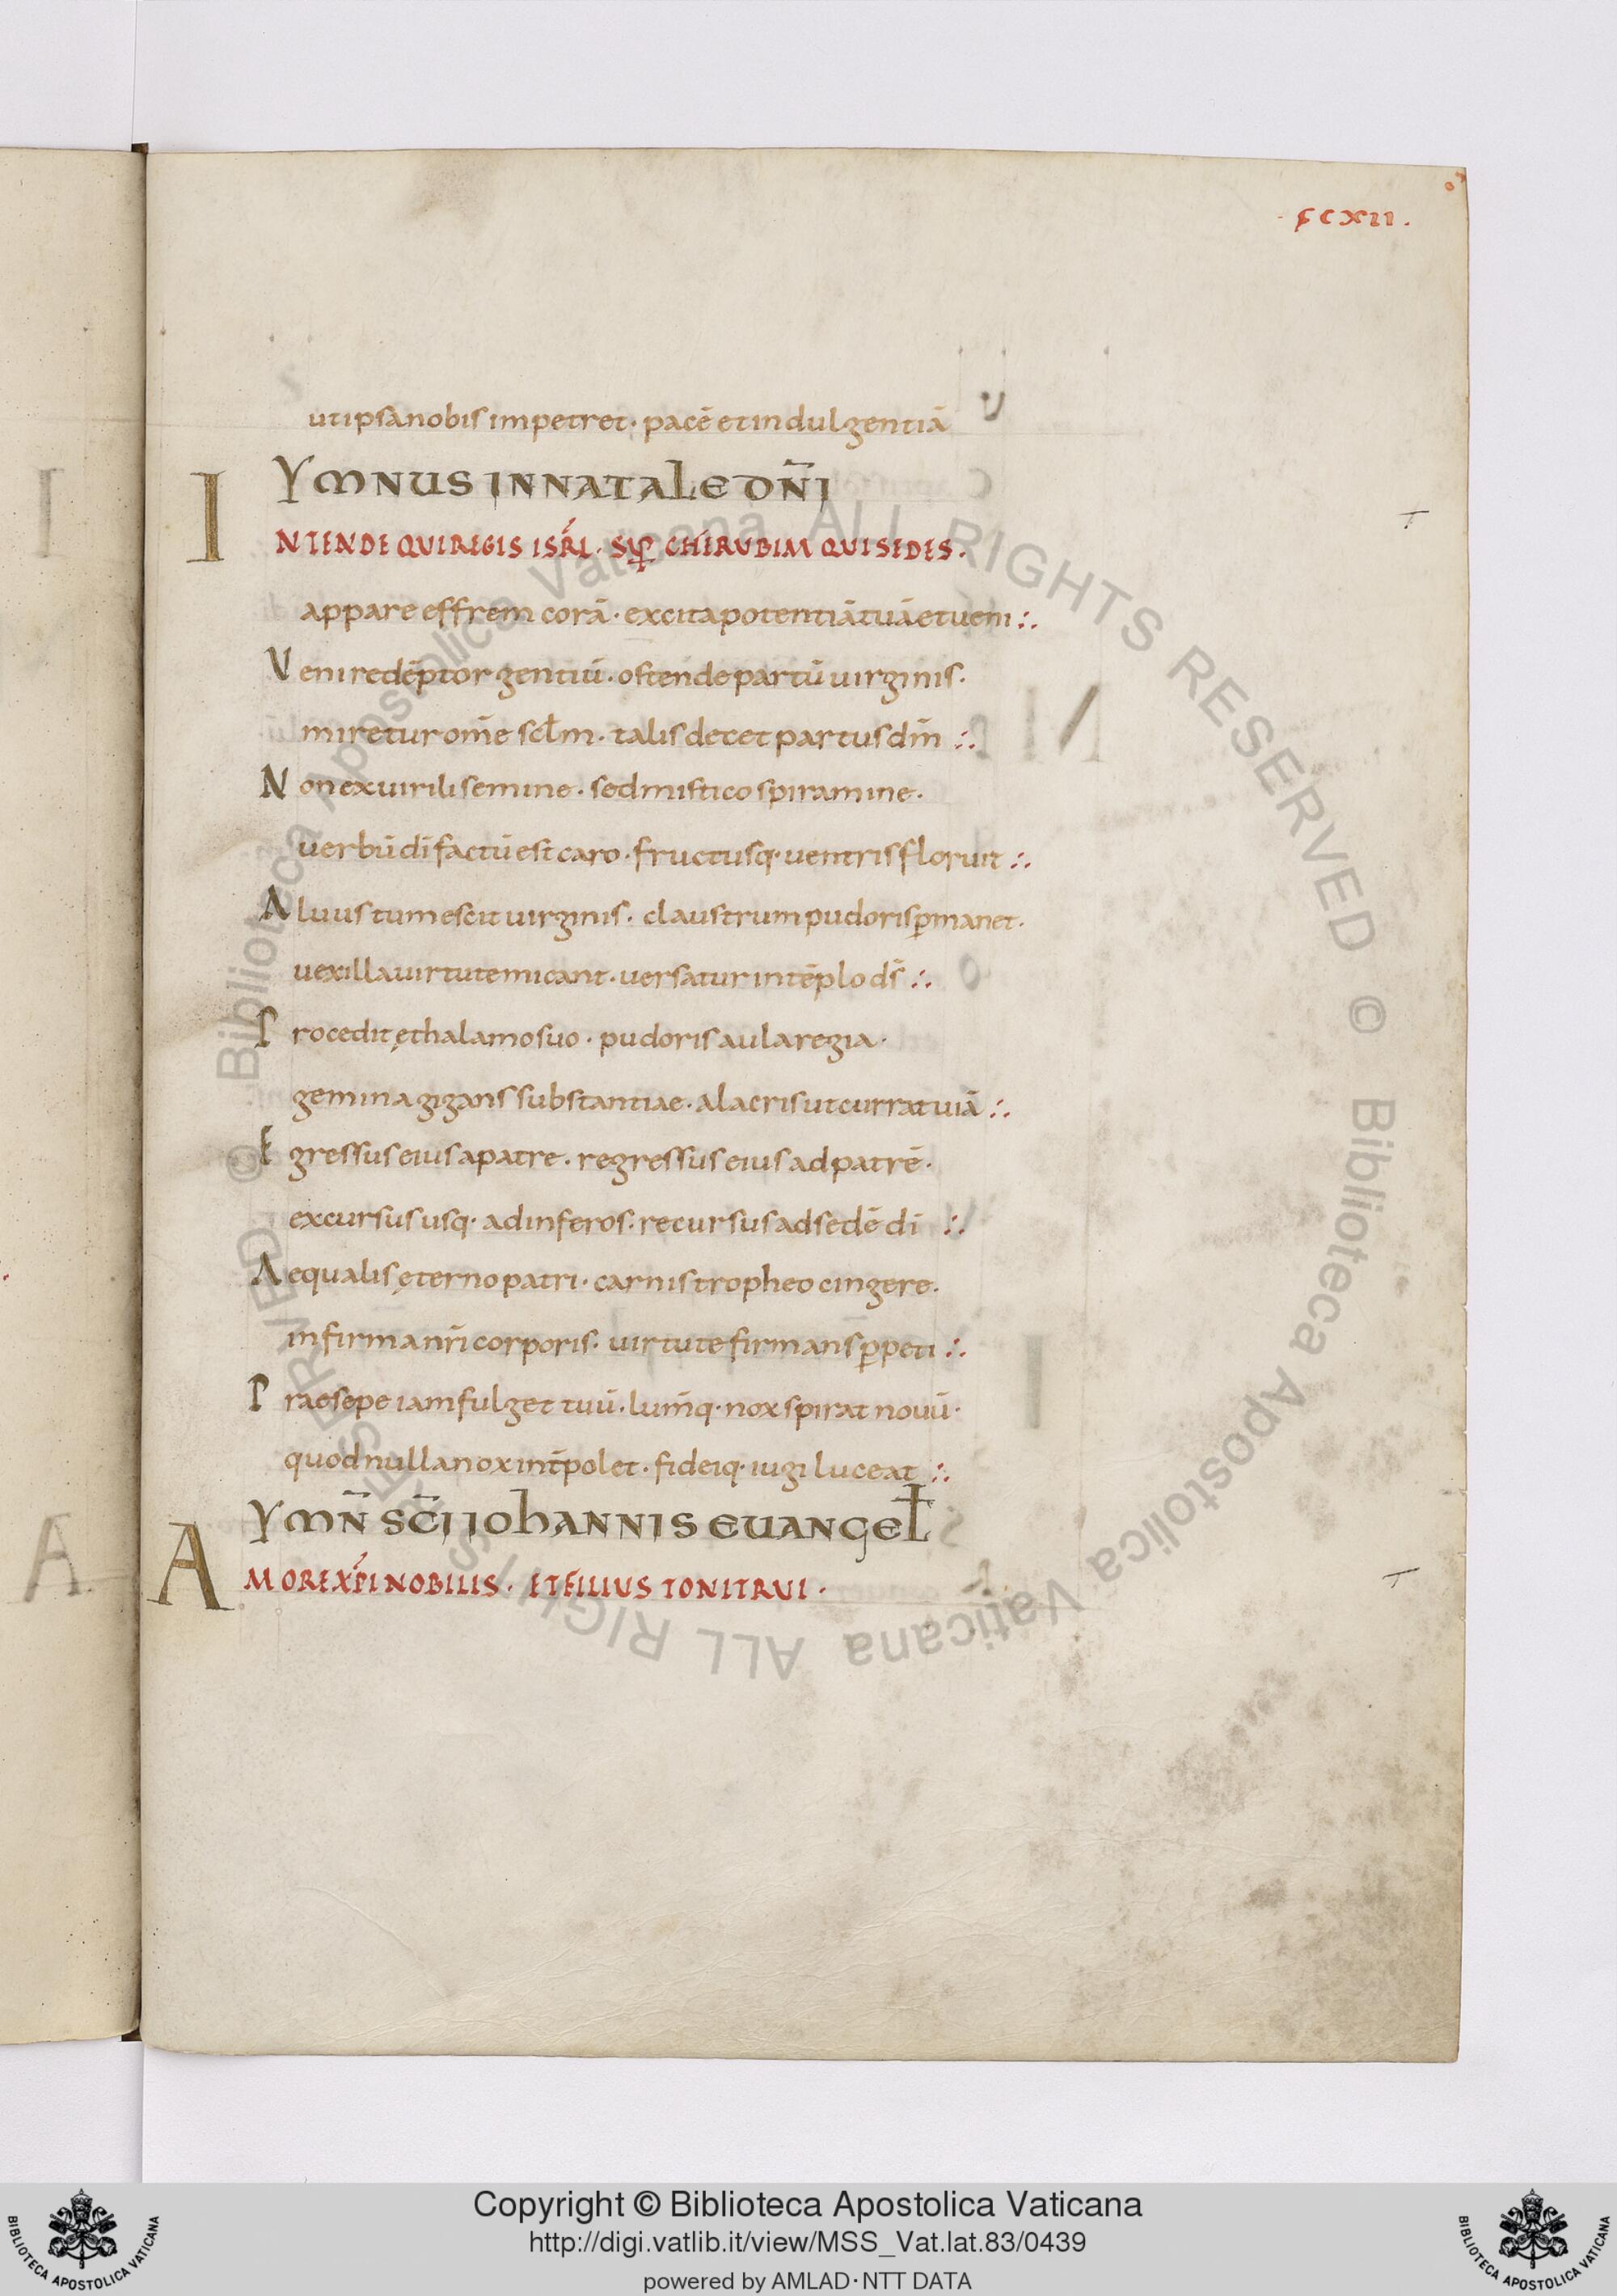 ꝼcxii.
ut ipsa nobis impetret · pacē et indulgentiā
YMNUS IN NATALE DN̄I
INTENDE QUI REGIS ISRL̄ · SUꝑ CHERUBIM QUI SEDES.
appare effrem corā · excita potentiā tuā et ueni :.
Veni redēptor gentiū · ostende partū uirginis.
miretur om̄e scl̄m · talis decet partus dm̄ :.
Non ex uirili semine · sed mistico spiramine.
uerbū dī factū est caro · fructusq· uentris floruit :.
Aluus tumescit uirginis · claustrum pudoris ꝑmanet.
uexilla uirtute micant · uersatur in tēplo ds̄ :.
Procedit ę thalamo suo · pudoris aula regia.
gemina gigans substantiae · alacris ut currat uiā :.
Egressus eius a patre · regressus eius ad patrē.
excursus usq· ad inferos · recursus ad sedē dī :.
Aequalis ęterno patri · carnis tropheo cingere.
infirma nr̄i corporis · uirtute firmans ꝑpeti :.
Praesepe iam fulget tuū · lum̄q· nox spirat nouū.
quod nulla nox int̄polet · fideiq· iugi luceat :.
YMN̄ SC̄I IOHANNIS EVANGEL̄
AMORE XP̄I NOBILIS · ET FILIUS TONITRUI ·
© Biblioteca Apostolica Vaticana ALL RIGHTS RESERVED © Biblioteca Apostolica Vaticana ALL RIGHTS RESERVED
Copyright © Biblioteca Apostolica Vaticana
http://digi.vatlib.it/view/MSS_Vat.lat.83/0439
powered by AMLAD·NTT DATA
BIBLIOTECA APOSTOLICA VATICANA
BIBLIOTECA APOSTOLICA VATICANA